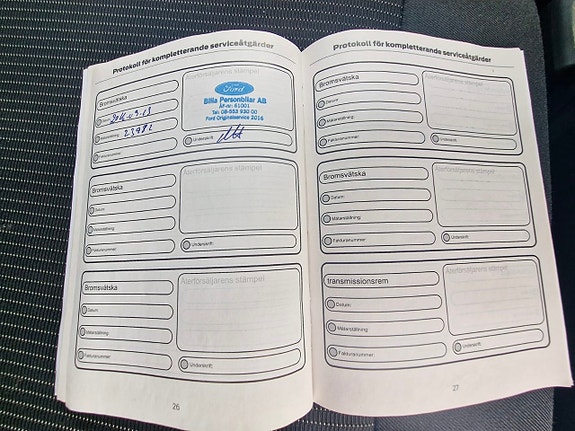 Protokoll för kompletterande serviceåtgärder
Bromsvätska
Datum:
Mätarställning:
23982
Fakturanummer:
Återförsäljarens stämpel
Ford
Bilia Personbilar AB
ÅF-nr: 61001
Tel: 08-553 930 00
Ford Originalservice 2016
Underskrift:
Bromsvätska
Datum:
Mätarställning:
Fakturanummer:
Återförsäljarens stämpel
Underskrift:
Bromsvätska
Datum:
Mätarställning:
Fakturanummer:
Återförsäljarens stämpel
Underskrift:
26
Protokoll för kompletterande serviceåtgärder
Bromsvätska
Datum:
Mätarställning:
Fakturanummer:
Återförsäljarens stämpel
Underskrift:
Bromsvätska
Datum:
Mätarställning:
Fakturanummer:
Återförsäljarens stämpel
Underskrift:
transmissionsrem
Datum:
Mätarställning:
Fakturanummer:
Återförsäljarens stämpel
Underskrift:
27